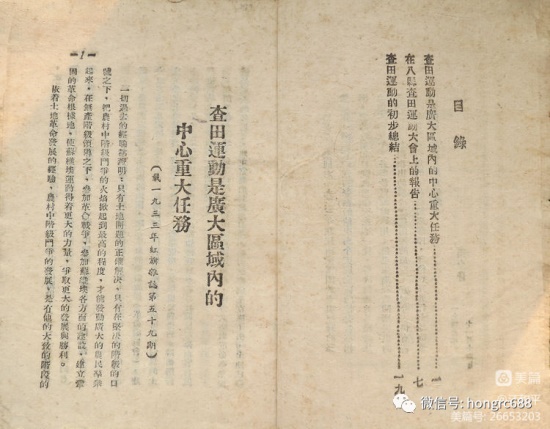 目錄
查田運動是廣大區域內的中心重大任務……一
在八縣查田運動大會上的報告……七
查田運動的初步總結……一九
查田運動是廣大區域內的
中心重大任務
（載一九三三年紅旗雜誌第五十九期）
一切過去的經驗都證明：只有土地問題的正確解決，只有在堅決的階級的口
號之下，把農村中階級鬥爭的火焰掀起到最高的程度，才能發動廣大的農民羣衆
起來，在無產階級領導之下，參加革命戰爭，參加蘇維埃各方面的建設，建立鞏
固的革命根據地，使蘇維埃運動得着更大的力量，爭取更大的發展與勝利。
依着土地革命發展的經驗，農村中階級鬥爭的發展，是有他的大致的階段的
—1—
美篇
微信号: hongrc688
美篇号: 26653203